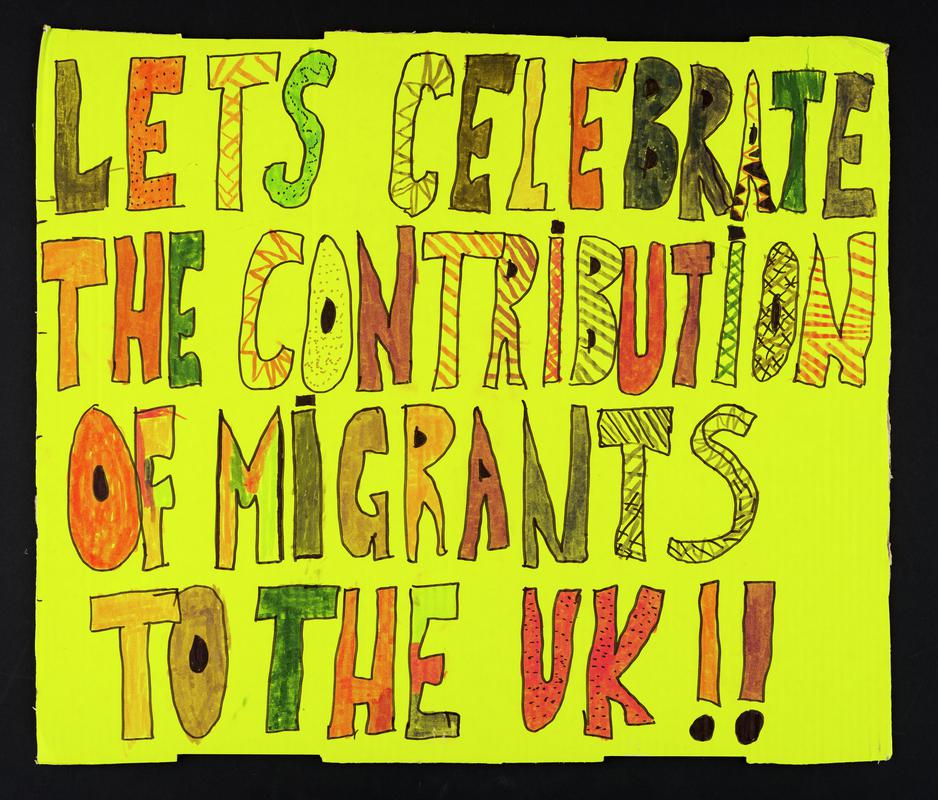 LETS CELEBRATE
THE CONTRiBUTiON
OF MiGRANTS
TO THE UK !!